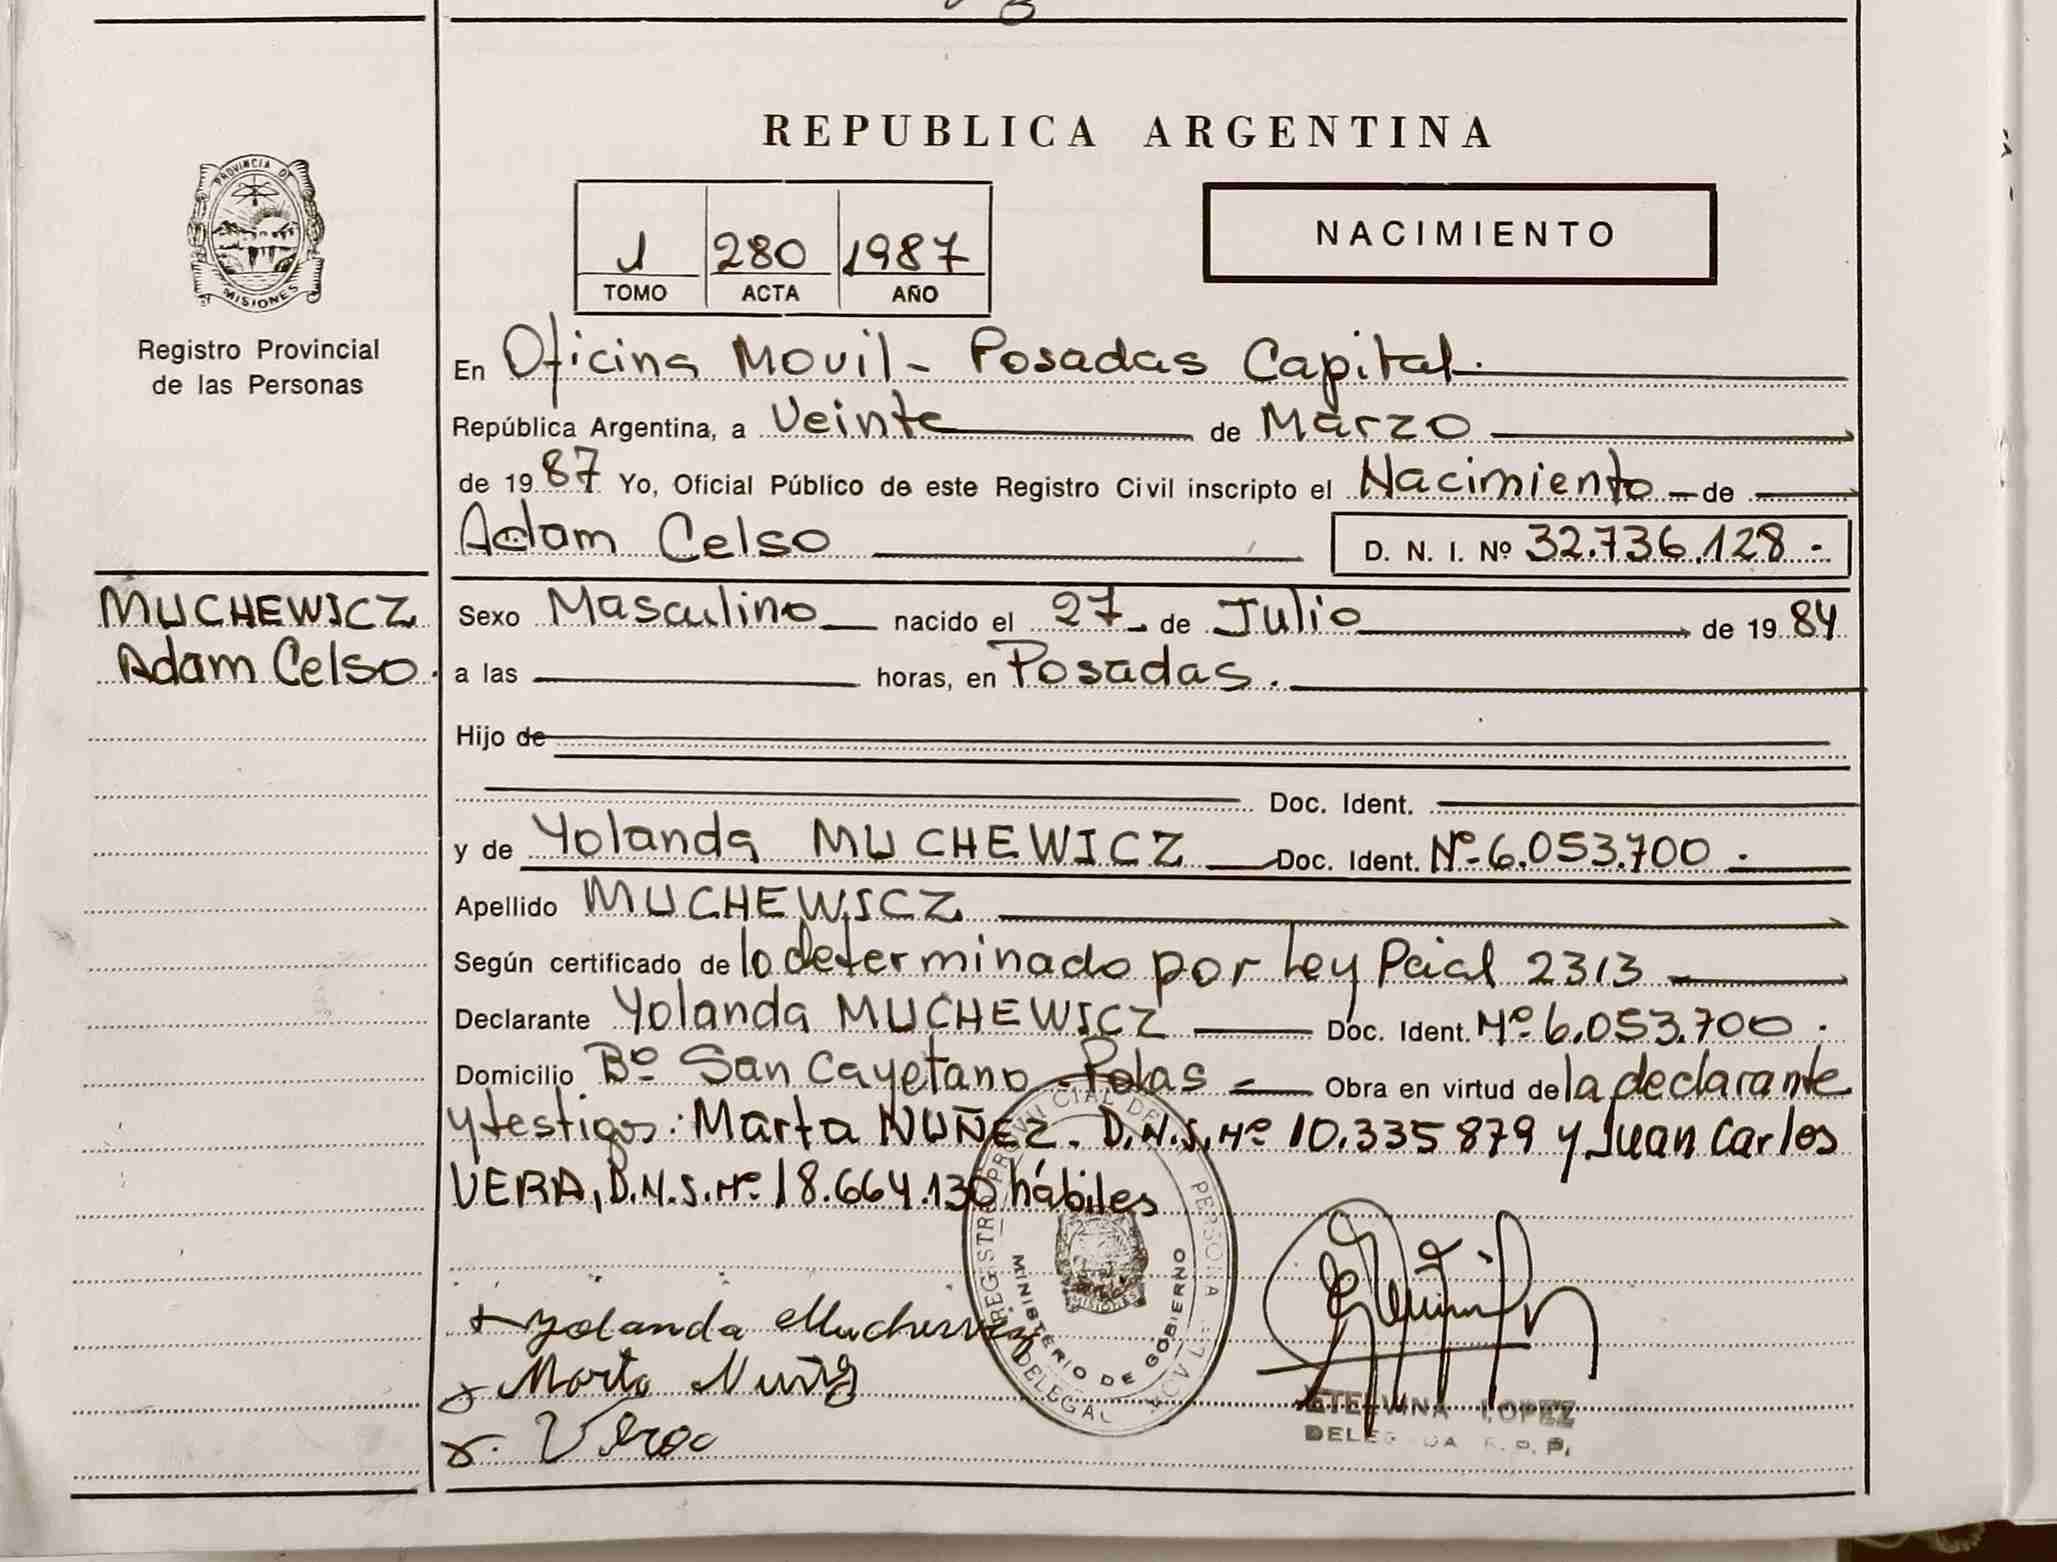 REPUBLICA ARGENTINA
PROVINCIA DE
MISIONES
Registro Provincial
de las Personas
1 280 1987
TOMO ACTA AÑO
NACIMIENTO
En Oficina Movil - Posadas Capital.
República Argentina, a Veinte de Marzo
de 1987 Yo, Oficial Público de este Registro Civil inscripto el Nacimiento de
Adam Celso D. N. I. Nº 32.736.128.-
MUCHEWICZ
Adam Celso.
Sexo Masculino nacido el 27 de Julio de 1984
a las horas, en Posadas.
Hijo de
Doc. Ident.
y de Yolanda MUCHEWICZ Doc. Ident. Nº 6.053.700.
Apellido MUCHEWICZ
Según certificado de lo determinado por Ley Pcial 2313
Declarante Yolanda MUCHEWICZ Doc. Ident. Nº 6.053.700.
Domicilio Bº San Cayetano - Pdas - Obra en virtud de la declarante
y testigos: Marta NUÑEZ. D.N.I. Nº 10.335879 y Juan Carlos
VERA, D.N.I. Nº 18.664.130 hábiles
REGISTRO PROVINCIAL DE
MINISTERIO DE GOBIERNO
MISIONES
Yolanda Muchewicz
Marta Nuñez
ETELVINA LOPEZ
DELEGADA R. P. P.